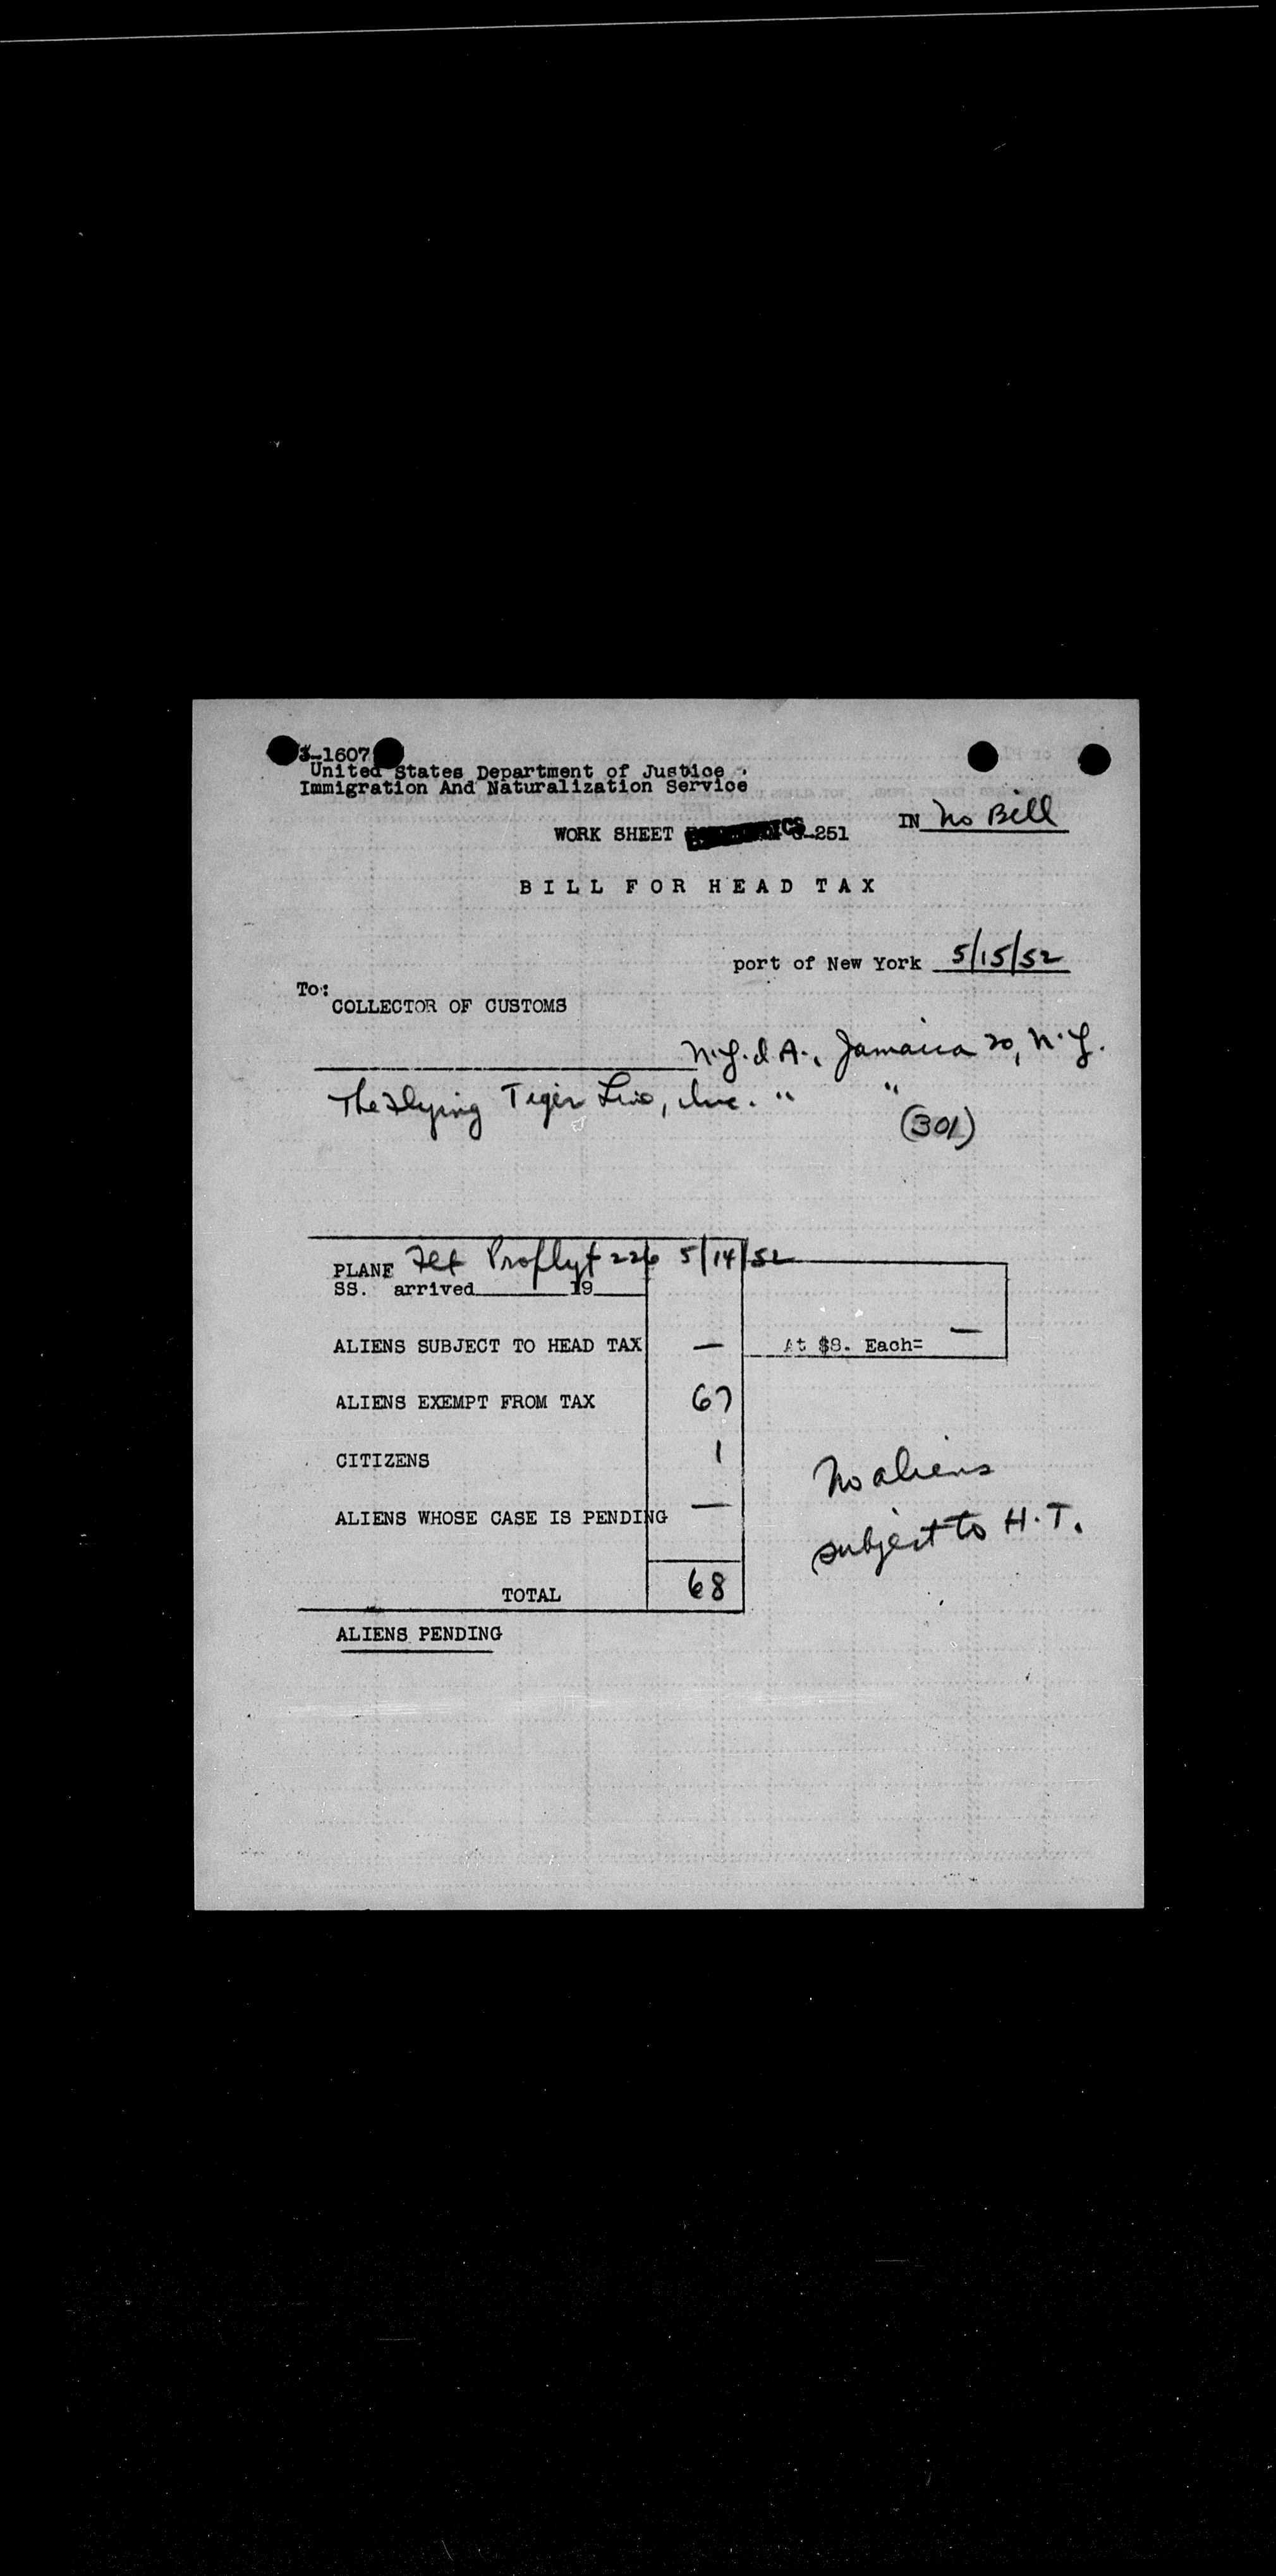 3-1607
United States Department of Justice
Immigration And Naturalization Service
IN No Bill
WORK SHEET -251
BILL FOR HEAD TAX
port of New York 5/15/52
To:
COLLECTOR OF CUSTOMS
N.Y.I.A., Jamaica 20, N.Y.
The Flying Tiger Line, Inc. " "
(301)
PLANE Flt Proflyt 226 5/14/52
SS. arrived 19
ALIENS SUBJECT TO HEAD TAX — At $8. Each= —
ALIENS EXEMPT FROM TAX 67
CITIZENS 1
No aliens
ALIENS WHOSE CASE IS PENDING —
subject to H.T.
TOTAL 68
ALIENS PENDING